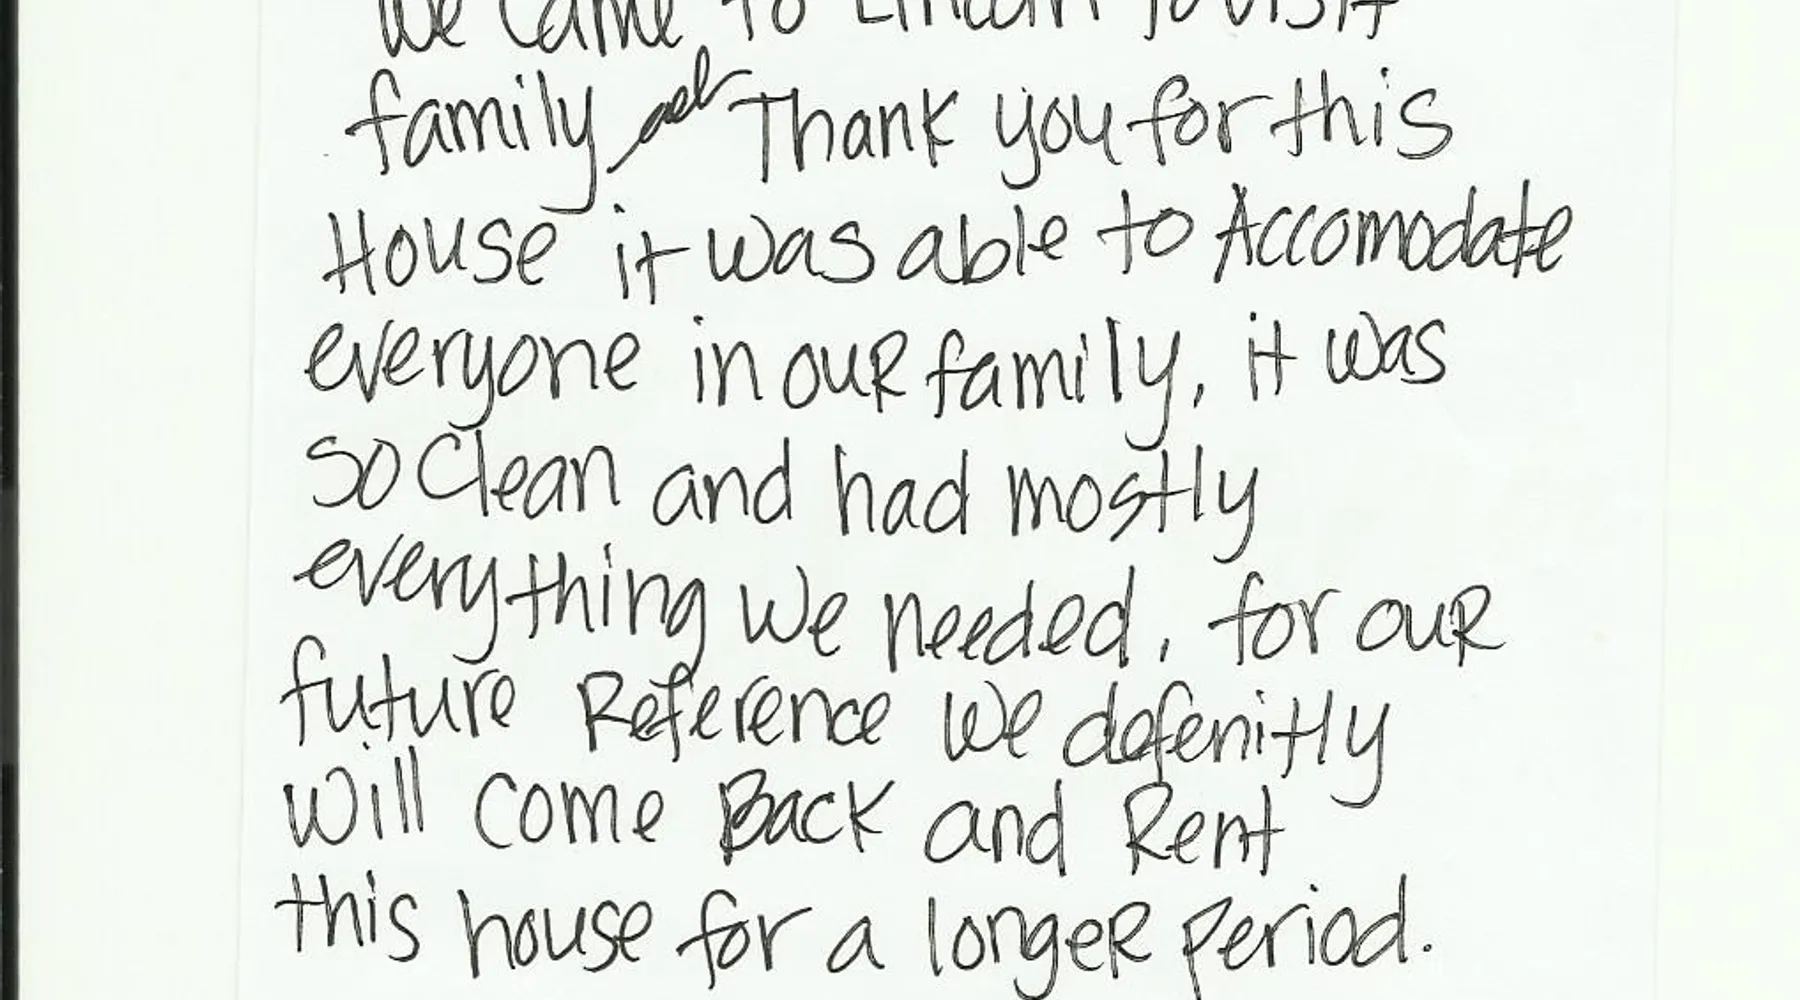 We came to Lincoln to visit
family Thank you for this
House it was able to Accomodate
everyone in ouR family, it was
so Clean and had mostly
everything we needed, for ouR
future Reference We defenitly
will come Back and Rent
this house for a longeR period.